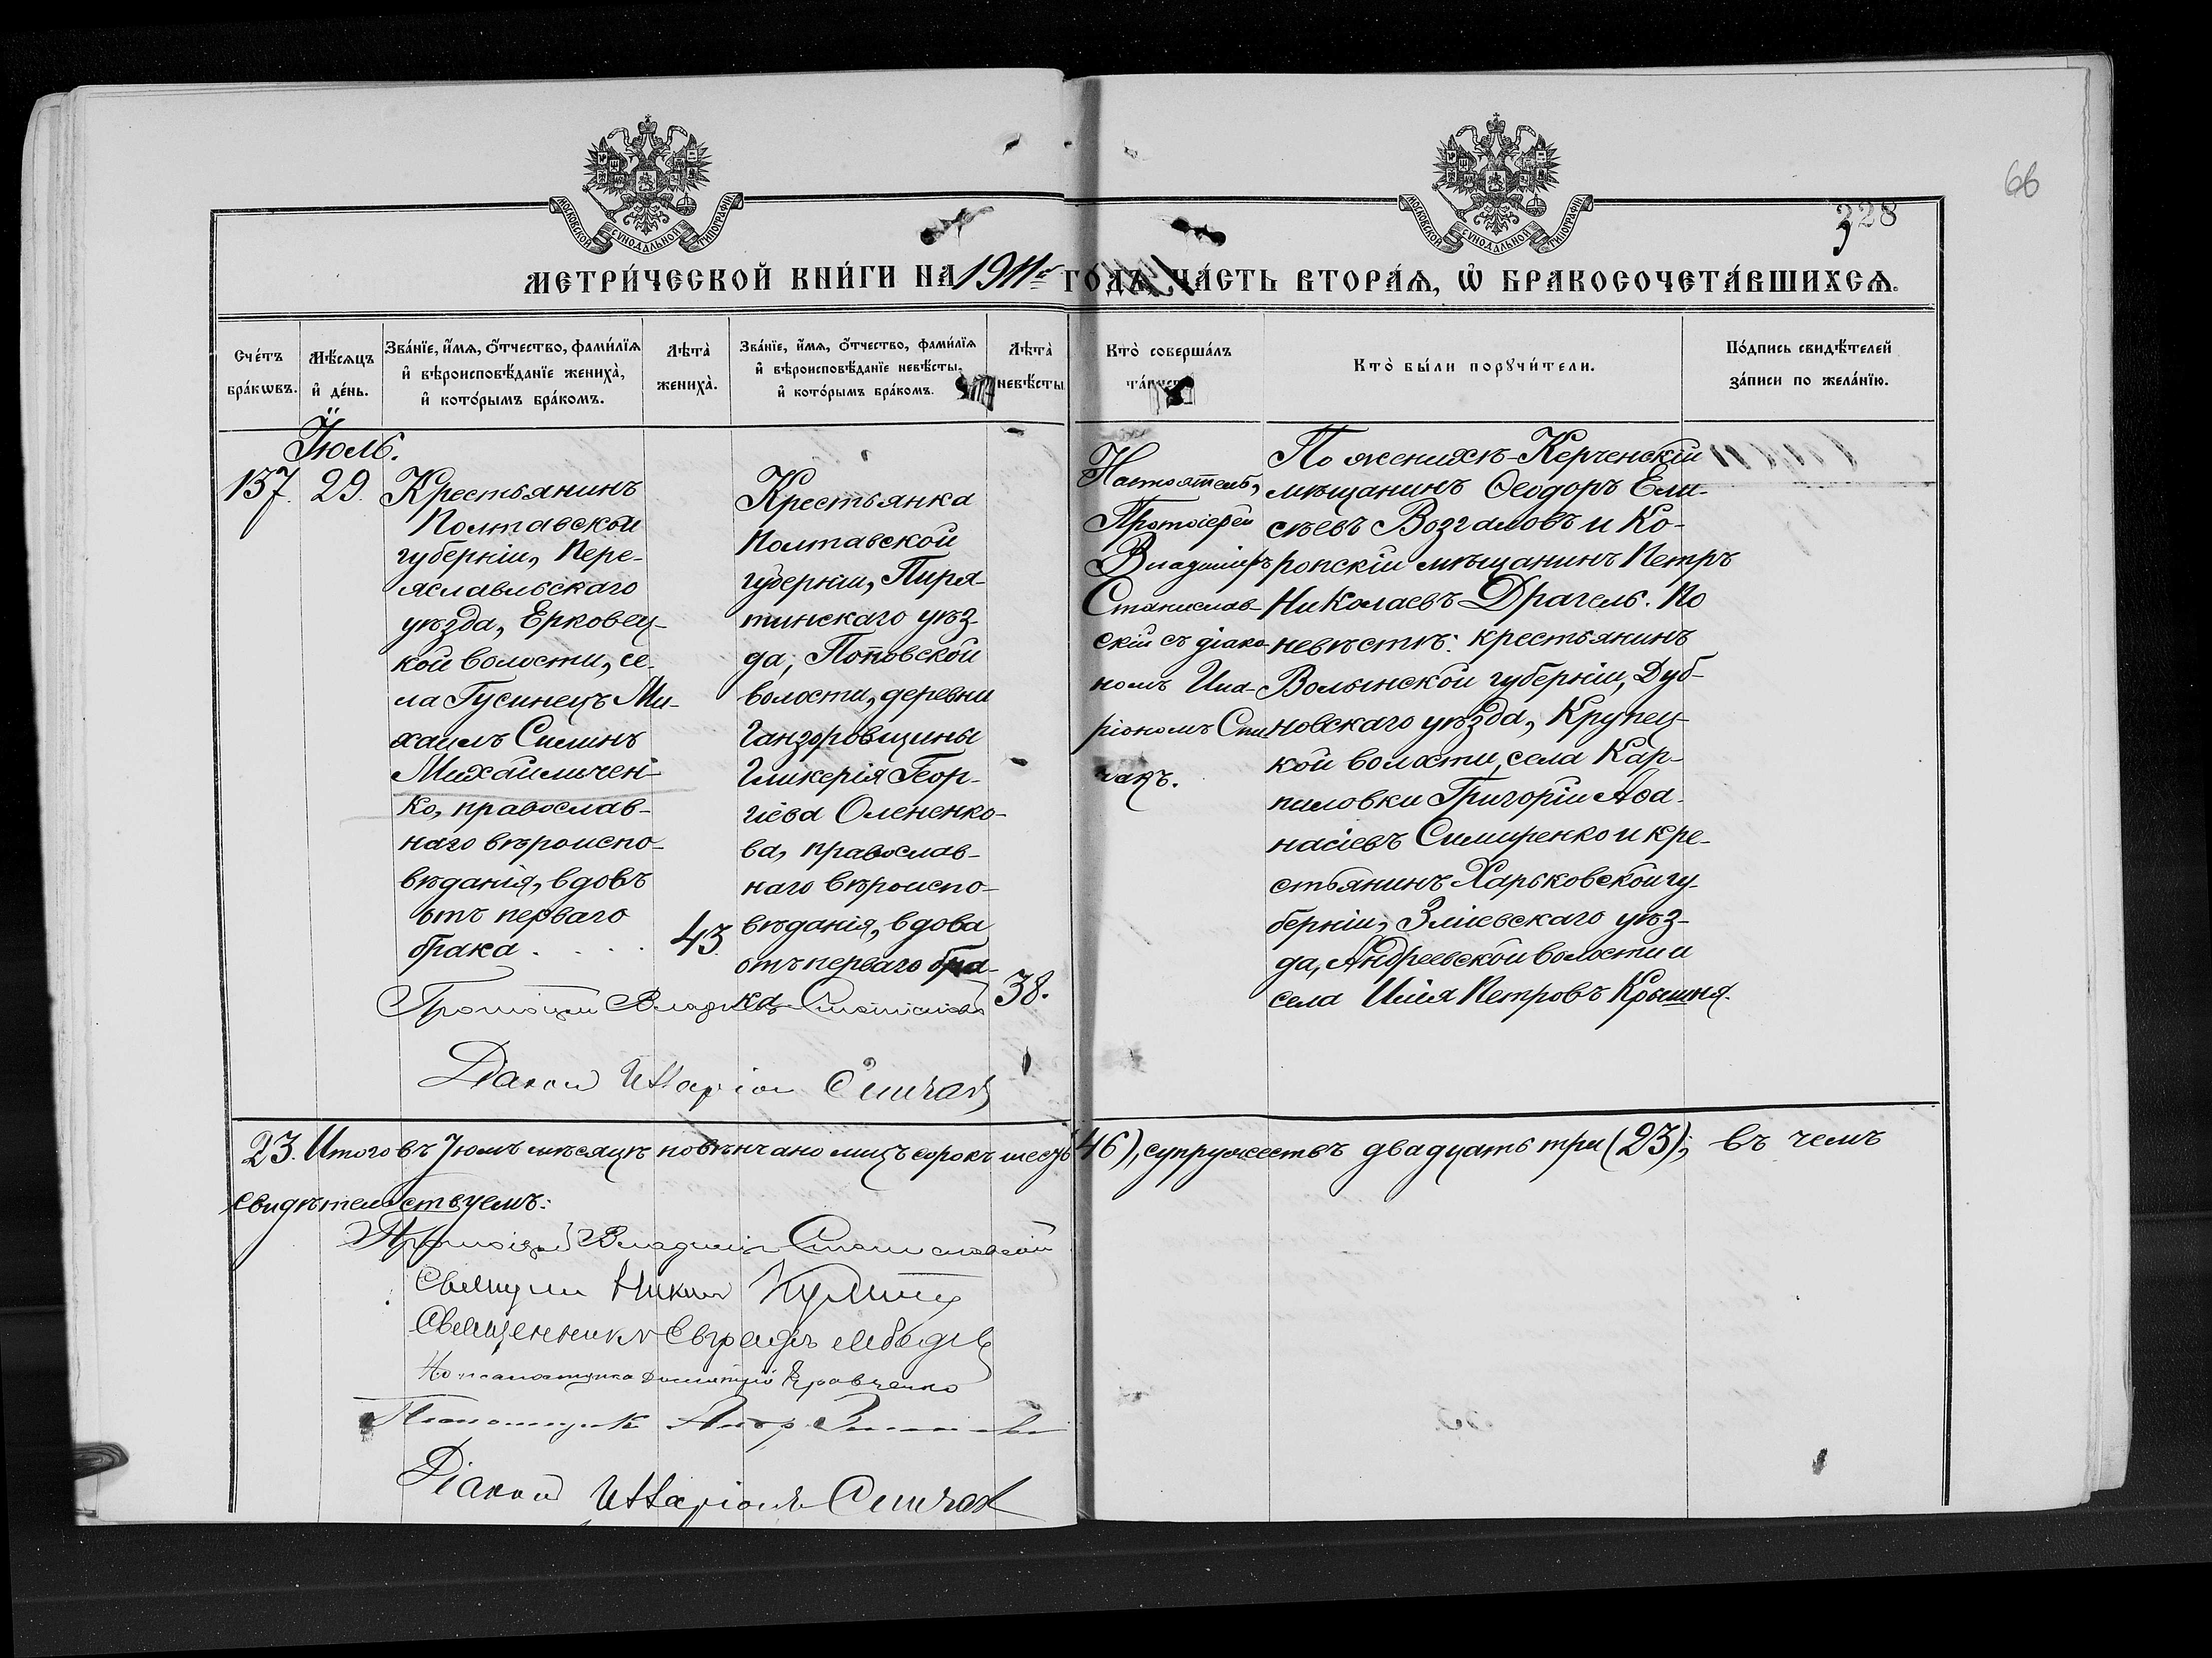 МОСКОВСКОЙ СѴНОДАЛЬНОЙ ТИПОГРАФІИ
МОСКОВСКОЙ СѴНОДАЛЬНОЙ ТИПОГРАФІИ
66
328
МЕТРИ́ЧЕСКОЙ КНИ́ГИ НА 1911й ГО́ДЪ, ЧА́СТЬ ВТОРА́Ѧ, Ѽ БРАКОСОЧЕТА́ВШИХСѦ.
Сче́тъ
бра́кѡвъ.
Мѣ́сѧцъ
и҆ де́нь.
Зва́нїе, и҆́мѧ, ѻ҆́тчество, фами́лїѧ
и҆ вѣроисповѣ́данїе жениха̀,
и҆ кото́рымъ бра́комъ.
Лѣта̀
жениха̀.
Зва́нїе, и҆́мѧ, ѻ҆́тчество, фами́лїѧ
и҆ вѣроисповѣ́данїе невѣ́сты,
и҆ кото́рымъ бра́комъ.
Лѣта̀
невѣ́сты.
Кто̀ соверша́лъ
Кто̀ бы́ли порꙋчи́тели.
По́дпись свидѣ́телей
за́писи по жела́нїю.
Іюль.
137. 29.
Крестьянинъ
Полтавской
губерніи, Пере-
яславльскаго
уѣзда, Ерковец-
кой волости, се-
ла Гусинецъ Ми-
хаилъ Силинъ
Михайличен-
ко, православ-
наго вѣроиспо-
вѣданія, вдовъ
отъ перваго
брака . . . . 43.
Крестьянка
Полтавской
губерніи, Пиря-
тинскаго уѣз-
да, Поповской
волости, деревни
Ганзоровщины
Гликерія Геор-
гіева Олененко-
ва, православ-
наго вѣроиспо-
вѣданія, вдова
отъ перваго бра-
ка 38.
Настоятель,
Протоіерей
Владиміръ
Станислав-
скій съ діако-
номъ Ила-
ріономъ Спи-
чакъ.
По женихѣ - Керченскій
мѣщанинъ Ѳеодоръ Ели-
сѣевъ Возгаловъ и Ко-
ропскій мѣщанинъ Петръ
Николаевъ Драгель. По
невѣстѣ: крестьянинъ
Волынской губерніи, Дуб-
новскаго уѣзда, Крупец-
кой волости, села Кар-
пиловки Григорій Аѳа-
насіевъ Симиренко и кре-
стьянинъ Харьковской гу-
берніи, Зміевскаго уѣз-
да, Андреевской волости и
села Илія Петровъ Крышня.
Протоіерей Владиміръ Станиславскій
Діаконъ Илларіонъ Спичакъ
23. Итого въ Іюлѣ мѣсяцѣ повѣнчано лицъ сорокъ шесть (46), супружествъ двадцать три (23); въ чемъ
свидѣтельствуемъ:
Протоіерей Владиміръ Станиславскій
Священникъ
Священникъ
Кравченко
Діаконъ Илларіонъ Спичакъ